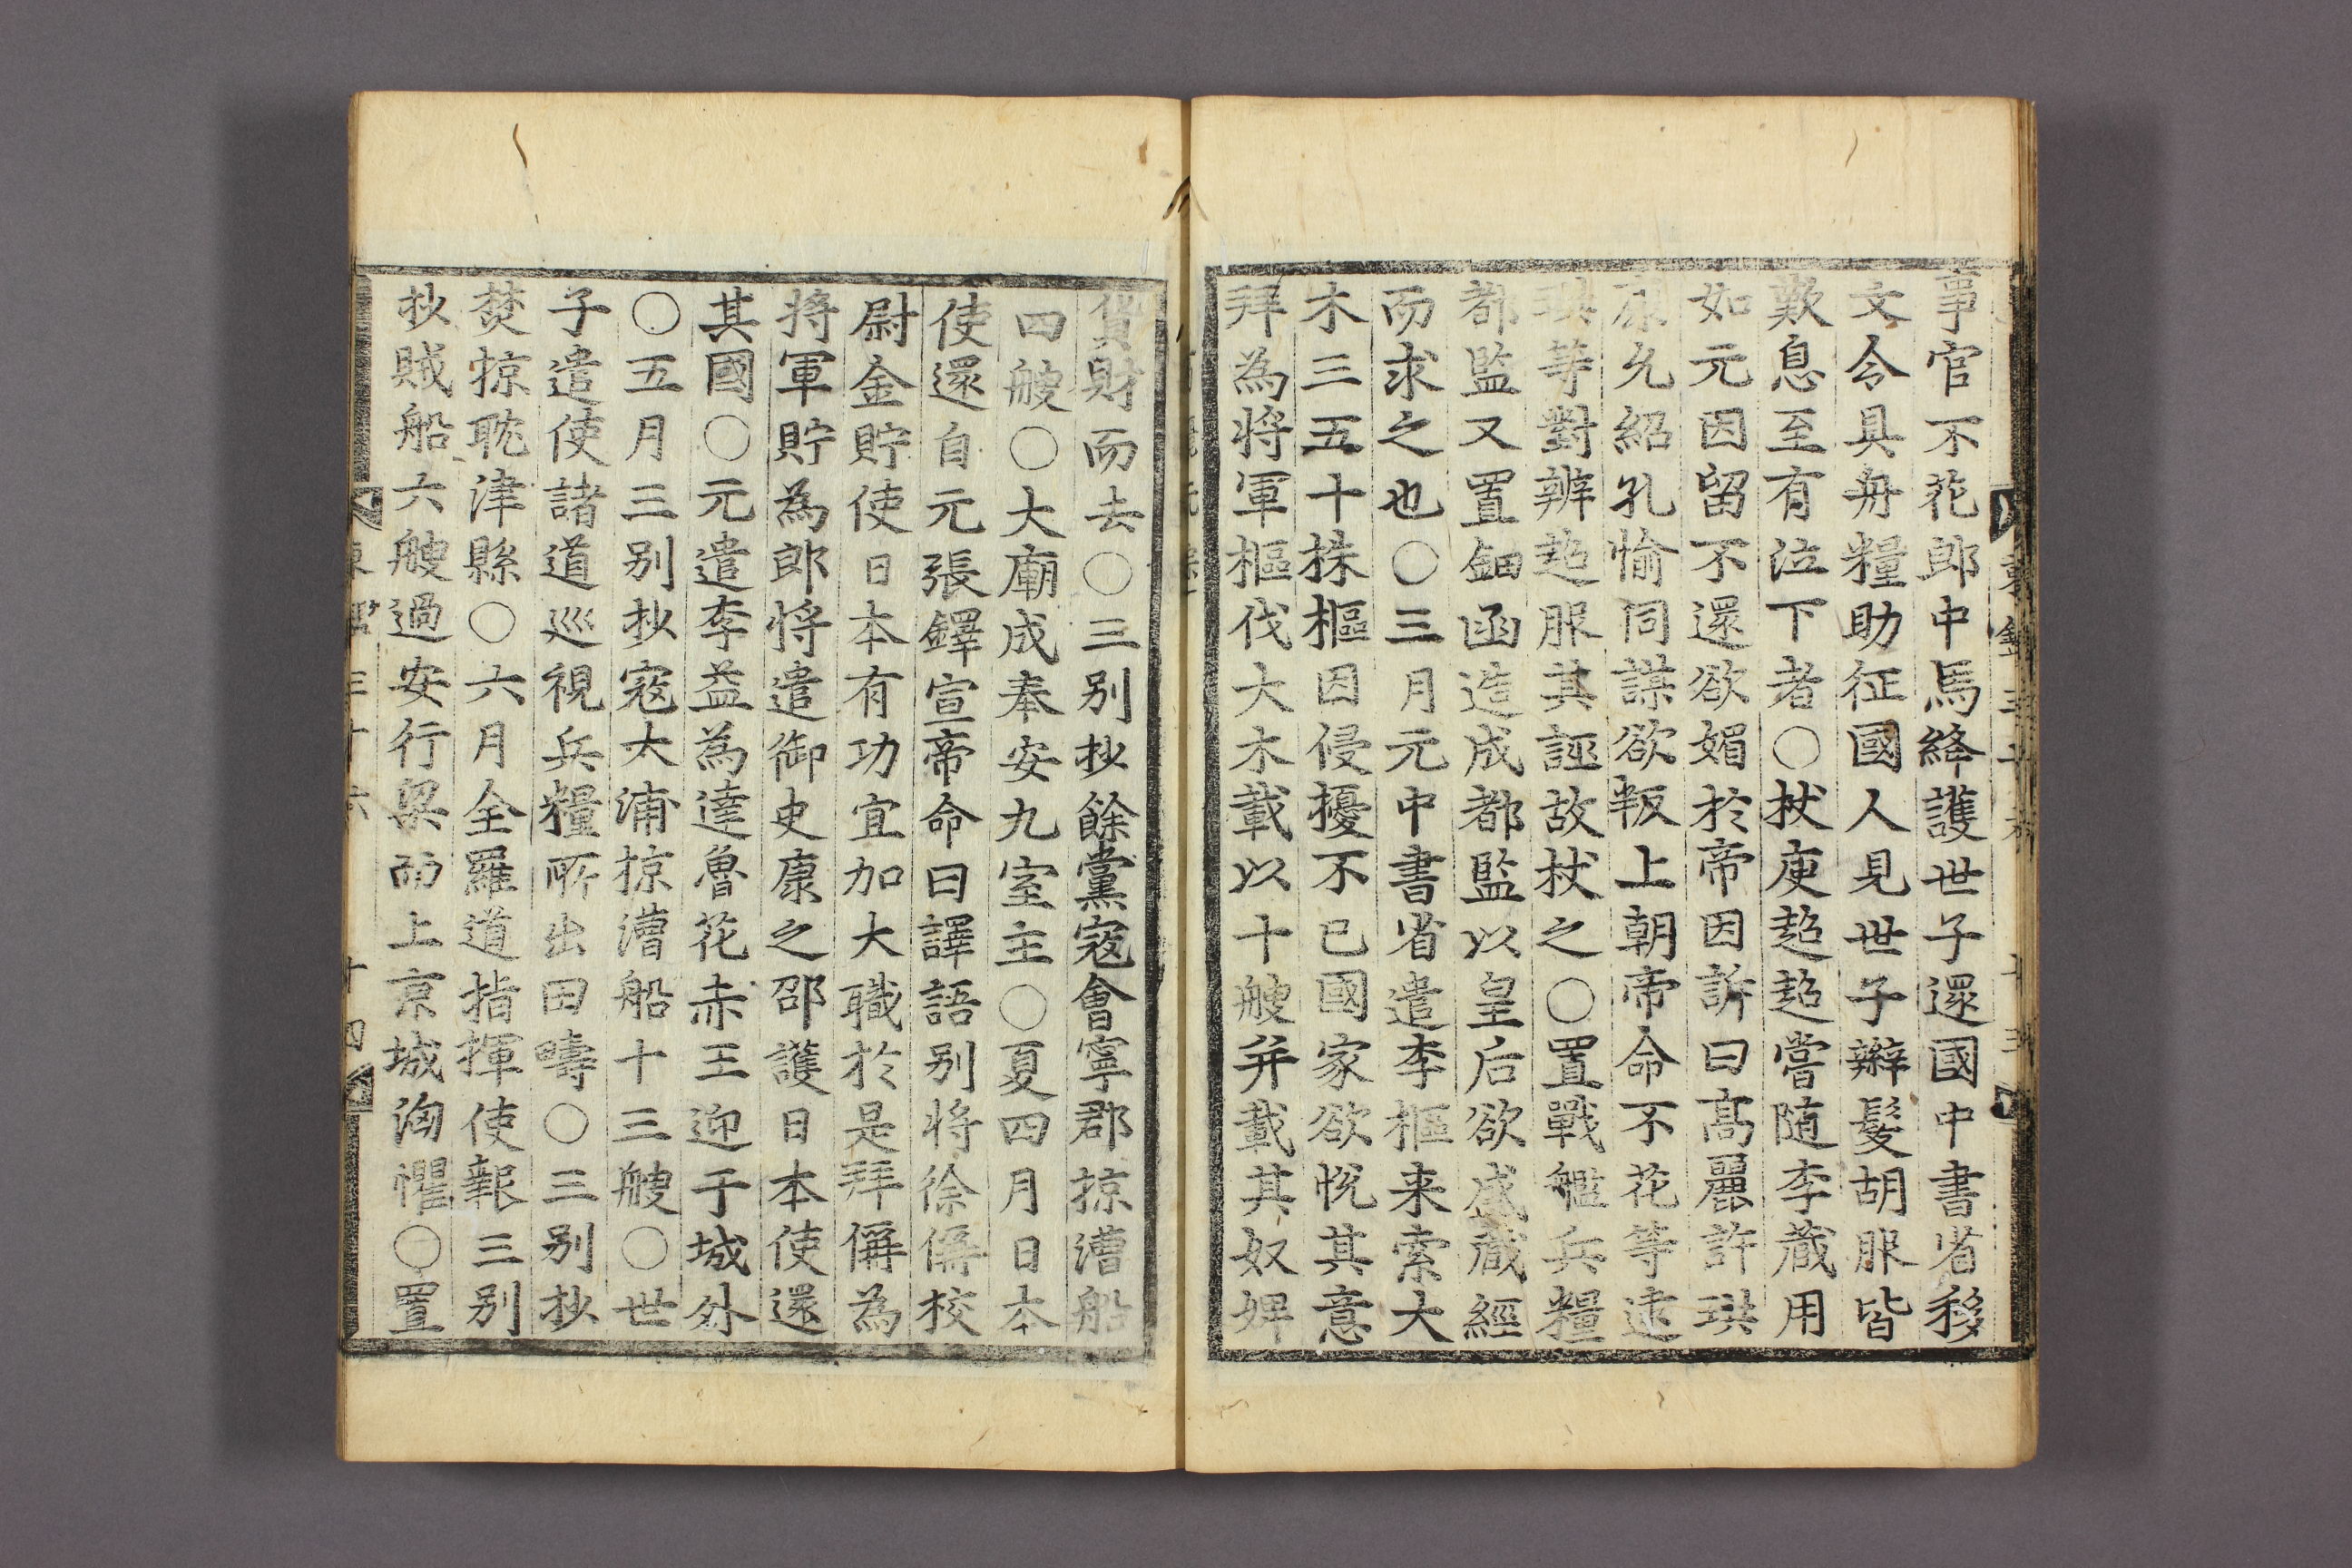 事官不花郎中馬絳護世子還國中書省移
文令具舟糧助征國人見世子辮髮胡服皆
歎息至有泣下者○杖庾趍趍嘗随李蔵用
如元因留不還欲媚於帝因訴曰髙麗許珙
康允紹孔愉同謀欲叛上朝帝命不花等逮
珙等對辨趍服其誣故杖之○置戰艦兵糧
都監又置鈿函造成都監以皇后欲盛蔵經
而求之也○三月元中書省遣李樞来索大
木三五十株樞因侵擾不已國家欲恱其意
拜為将軍樞伐大木載以十艘并載其奴婢
貨財而去○三别抄餘黨寇會寧郡掠漕船
四艘○大廟成奉安九室主○夏四月日本
使還自元張鐸宣帝命曰譯語别将徐偁校
尉金貯使日本有功宜加大職於是拜偁為
将軍貯為郎将遣御史康之邵護日本使還
其國○元遣李益為達魯花赤王迎于城外
○五月三别抄寇大浦掠漕船十三艘○世
子遣使諸道巡視兵糧所出田疇○三别抄
焚掠耽津縣○六月全羅道指揮使報三别
抄賊船六艘過安行梁而上京城洶懼○置
東鑑三十六 十四